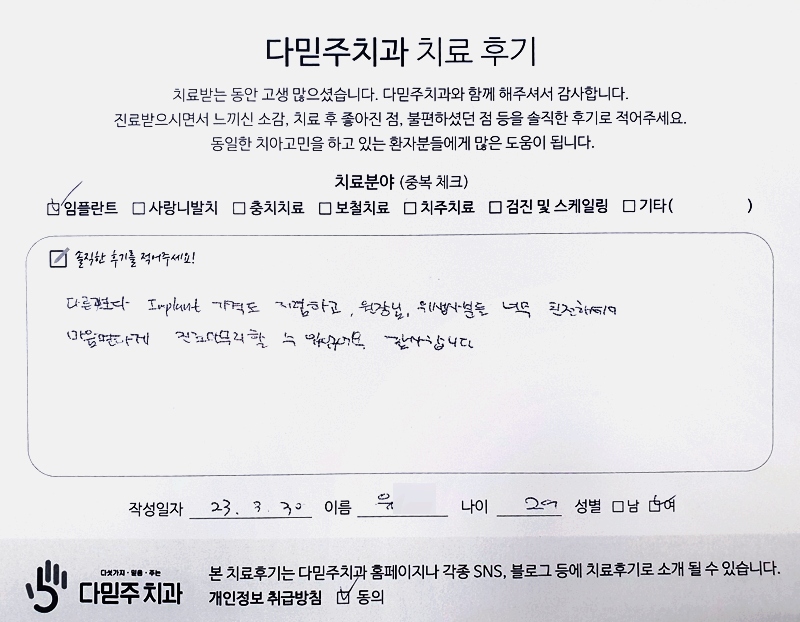 다믿주치과 치료 후기
치료받는 동안 고생 많으셨습니다. 다믿주치과와 함께 해주셔서 감사합니다.
진료받으시면서 느끼신 소감, 치료 후 좋아진 점, 불편하셨던 점 등을 솔직한 후기로 적어주세요.
동일한 치아고민을 하고 있는 환자분들에게 많은 도움이 됩니다.
치료분야 (중복 체크)
임플란트 사랑니발치 충치치료 보철치료 치주치료 검진 및 스케일링 기타( )
솔직한 후기를 적어주세요!
다른곳보다 Implant 가격도 저렴하고, 원장님, 위생사분들 너무 친절하셔서
마음편하게 진료마무리할 수 있었네요 감사합니다
작성일자 23. 3. 30 이름 유 나이 성별 남 여
다섯가지·믿음·주는
다믿주치과
본 치료후기는 다믿주치과 홈페이지나 각종 SNS, 블로그 등에 치료후기로 소개 될 수 있습니다.
개인정보 취급방침 동의